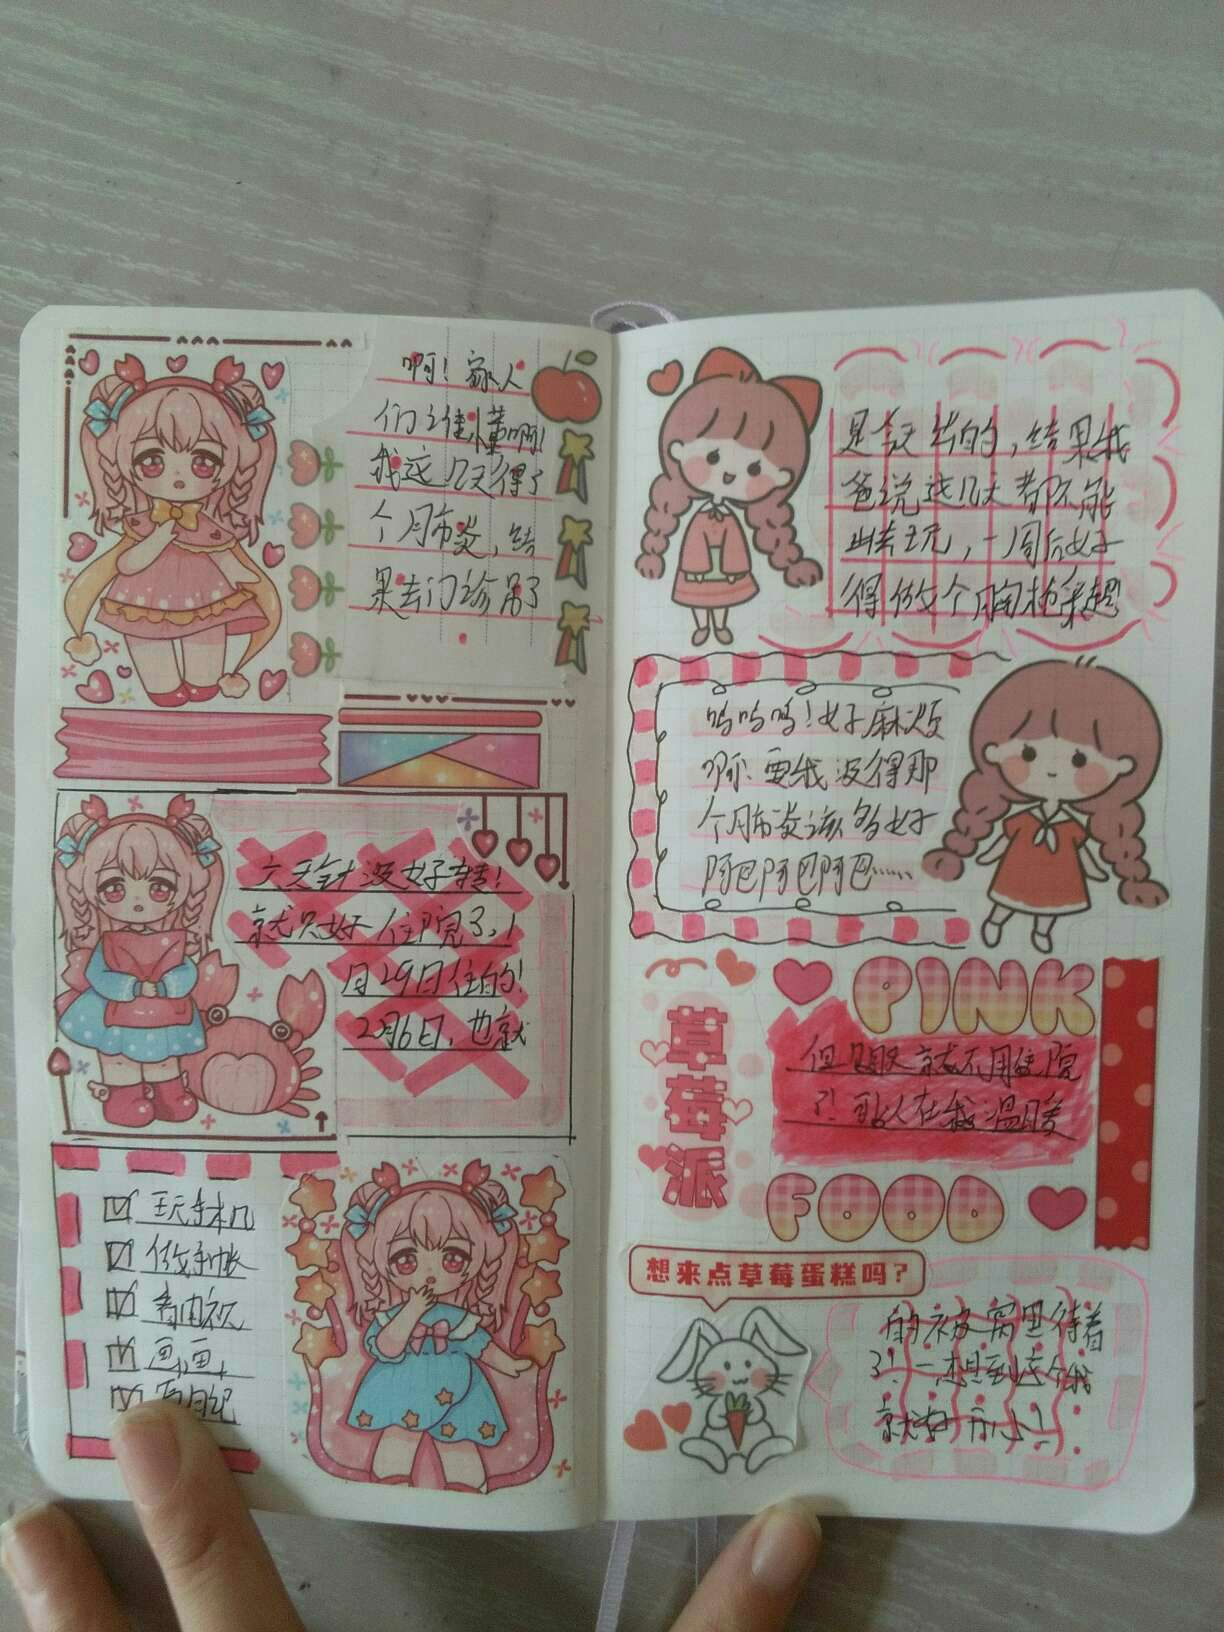 啊！家人
们！谁懂啊！
我这几天得了
个肺炎，结
果去门诊吊了
六天针没好转！
就只好住院了，1
月29日住的！
2月6日，也就
玩手机
做手帐
看电视
画画
写日记
是今天出的，结果我
爸说这几天都不能
出去玩，一周后好
得做个胸
呜呜呜！好麻烦
啊！要我没得那
个肺炎该多好
阿巴阿巴阿巴……
PINK
草莓派
但是就不用住院
了！别人在我温暖
FOOD
想来点草莓蛋糕吗？
的被窝里待着
了！一想到这个我
就好开心！